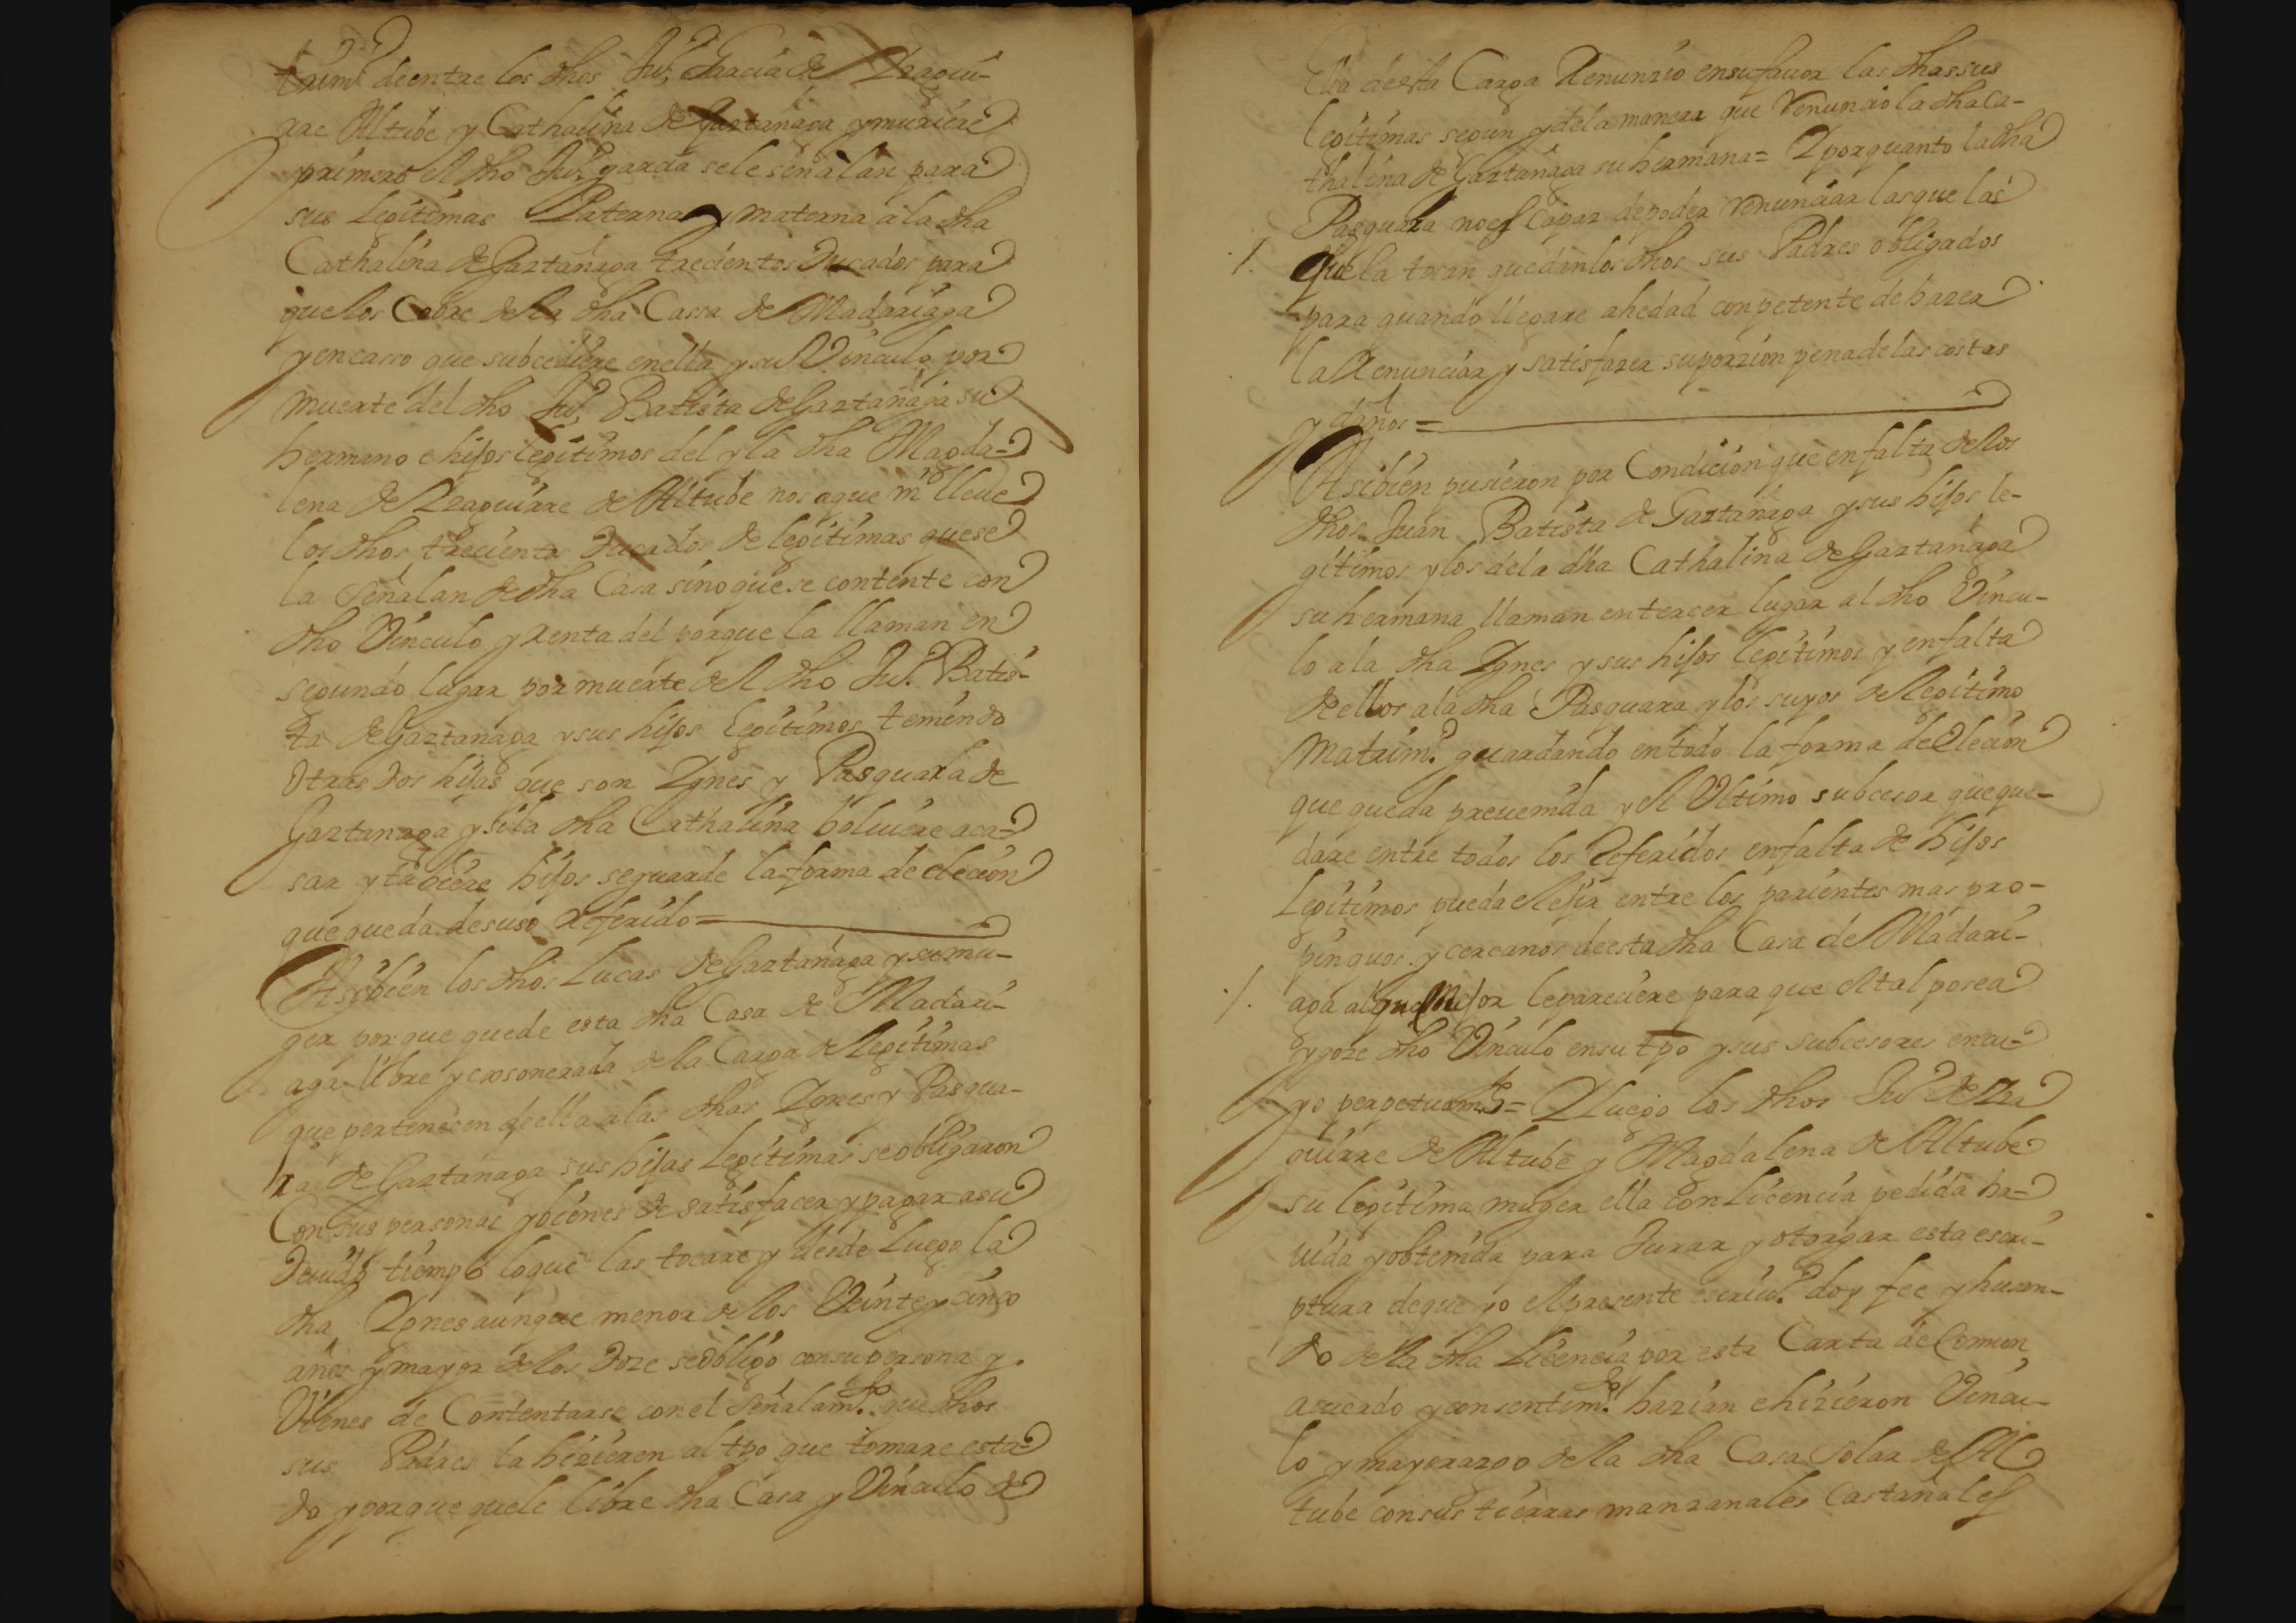 traim.º deentre los dhos Ju.º Garcia de Yraguì-
rre Altube y Cathalina de Gaztañaga ymuriere
primero el dho Ju.º garcia sele señalan para
sus Legitimas Paterna y materna ala dha
Cathalina de Gaztañaga trecientos Ducados para
quelos Cobre de la dha Cassa de Madariaga
yencasso que subcediere enella ysu Vinculo por
muerte del dho Ju.º Batista de Gaztañaga su
hermano e hijos legitimos del yla dha Magda-
lena de Yraguirre de Altube nos ague ni lleue
los dhos trecientos Ducados de legitimas quese
la Señalan de dha Casa sinoquese contente con
dho Vinculo y Renta del porque la llaman en
segundo lugar por muerte del dho Ju.º Batis-
ta de Gaztañaga ysus hijos Legitimos temiendo
Otras dos hijas que son Ygnes y Pasquala de
Gaztañaga ysila dha Cathalina bolviere aca-
sar ytubiere hijos seguarde la forma de elecion
que queda desuso Referido=
Asibien los dhos Lucas de Gaztañaga ysu mu-
ger por que quede esta dha Casa de Madari-
aga libre yexsonerada de la Carga de Legitimas
que pertenecen deella alas dhas Ygnes y Pasqua-
ra de Gaztañaga sus hijas Legitimas seobligaron
Con sus personas ybienes de satisfacer ypagar asu
Deuido tiempo loque las tocare y desde Luego la
dha Ygnes aunque menor de los Veinte y cinco
años ymayor delos Doze seobligo consupersona y
Vienes de Contentarse conel Señalam.to que dhos
sus Padres la hizieren al tpo que tomare esta-
do yporque quede libre dha Casa y Vinculo de
Ella desta Carga Renunzio ensufauor las dhas sus
Legitimas segun ydela manera que Renuncio la dha Ca-
thalina de Gaztañaga su hermana= Yporquanto la dha
Pasquala noes Capaz depoder Renunciar lasque las
quela tocan quedanlos dhos sus Padres obligados
para quando llegare ahedad conpetente dehazer
la Renunciar y satisfazer suporzion penadelas costas
y daños=
Asibien pusieron por Condicion que enfalta de los
dhos Juan Batista de Gaztañaga ysus hijos le-
gitimos ylos dela dha Cathalina de Gaztañaga
su hermana llaman entercer lugar al dho Vincu-
lo ala dha Ygnes ysus hijos Legitimos yenfalta
deellos ala dha Pasquara ylos suyos de legitimo
Matrim.º guardando entodo la forma de Elecion
que queda preuenida yel Ultimo subcesor queque-
dare entre todos los Referidos enfalta de hijos
Legitimos pueda elejir entre los parientes mas pro-
pinquos y cercanos deesta dha Casa de Madari-
aga alque Mejor lepareciere para que el tal posea
ygoze dho Vinculo ensu tpo ysus Subcesores encu-
yo perpetuam.te= Yluego los dhos Ju.º de Yra
guirre de Altube y Magdalena de Altube
su legitima muger ella con Licencia pedida ha-
uida yobtenida para Jurar y otorgar esta escri-
ptura deque yo el presente escriu.º doy fee yhusan-
do de la dha Licencia por esta Carta de Comun
acuerdo yconsentim.to hazian ehizieron Vincu-
lo ymayorazgo de la dha Casa Solar de Al
tube consus tierras manzanales Castañales